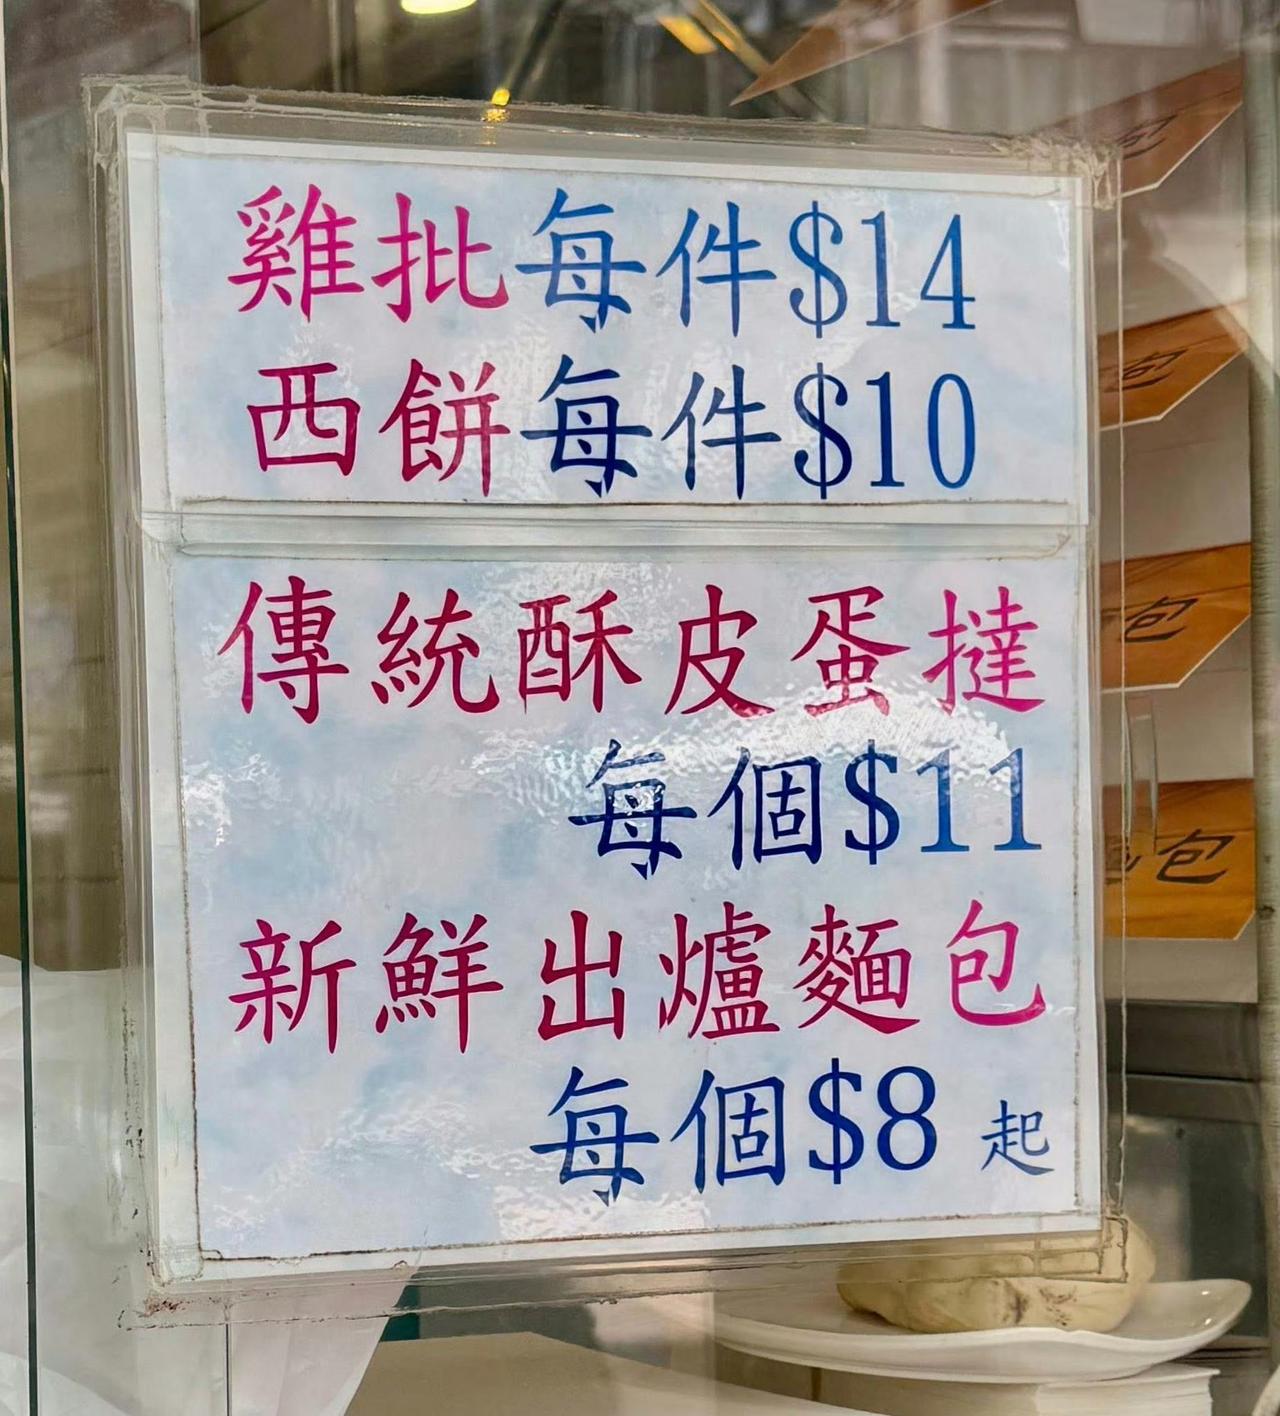 雞批每件$14
西餅每件$10
傳統酥皮蛋撻
每個$11
新鮮出爐麵包
每個$8 起
包
包
包
包